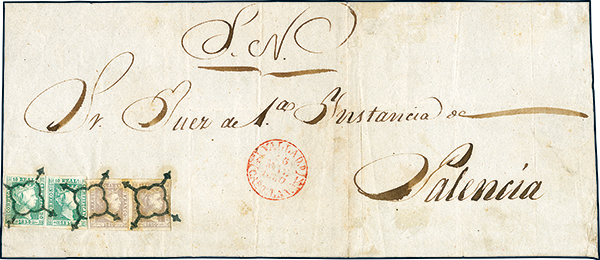 S. N.
Sr. Juez de 1.ª Instancia de
Palencia
VALLADOLID